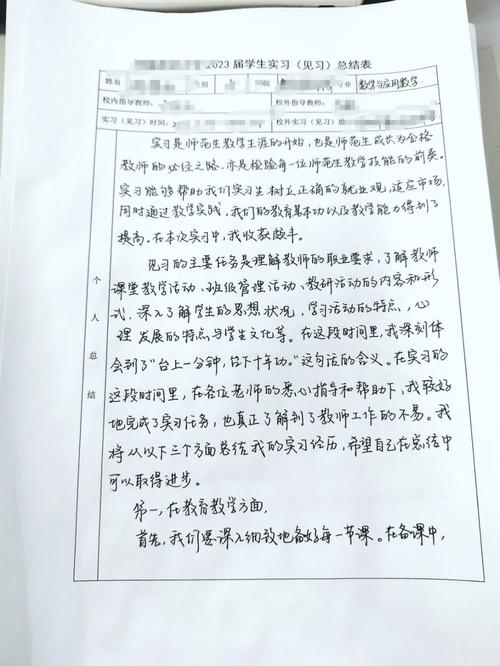 2023 届学生实习（见习）总结表
姓名 别 院 专业 数学与应用数学
校内指导教师： 校外指导教师：
实习（见习）时间： 校外实习（见习）
个人总结
实习是师范生教学生涯的开始，也是师范生成长为合格
教师的必经之路，亦是检验每一位师范生教学技能的前奏。
实习能够帮助我们实习生树立正确的就业观，适应市场，
同时通过教学实践，我们的教育基本功以及教学能力得到了
提高。在本次实习中，我收获颇丰。
见习的主要任务是理解教师的职业要求，了解教师
课堂教学活动、班级管理活动、教研活动的内容和形
式，深入了解学生的思想状况，学习活动的特点，心
理发展的特点与学生文化等。在这段时间里，我深刻体
会到了“台上一分钟，台下十年功。”这句话的含义。在实习的
这段时间里，在各位老师的悉心指导和帮助下，我较好
地完成了实习任务，也真正了解到了教师工作的不易。我
将从以下三个方面总结我的实习经历，希望自己在总结中
可以取得进步。
第一，在教育教学方面，
首先，我们要深入细致地备好每一节课。在备课中，